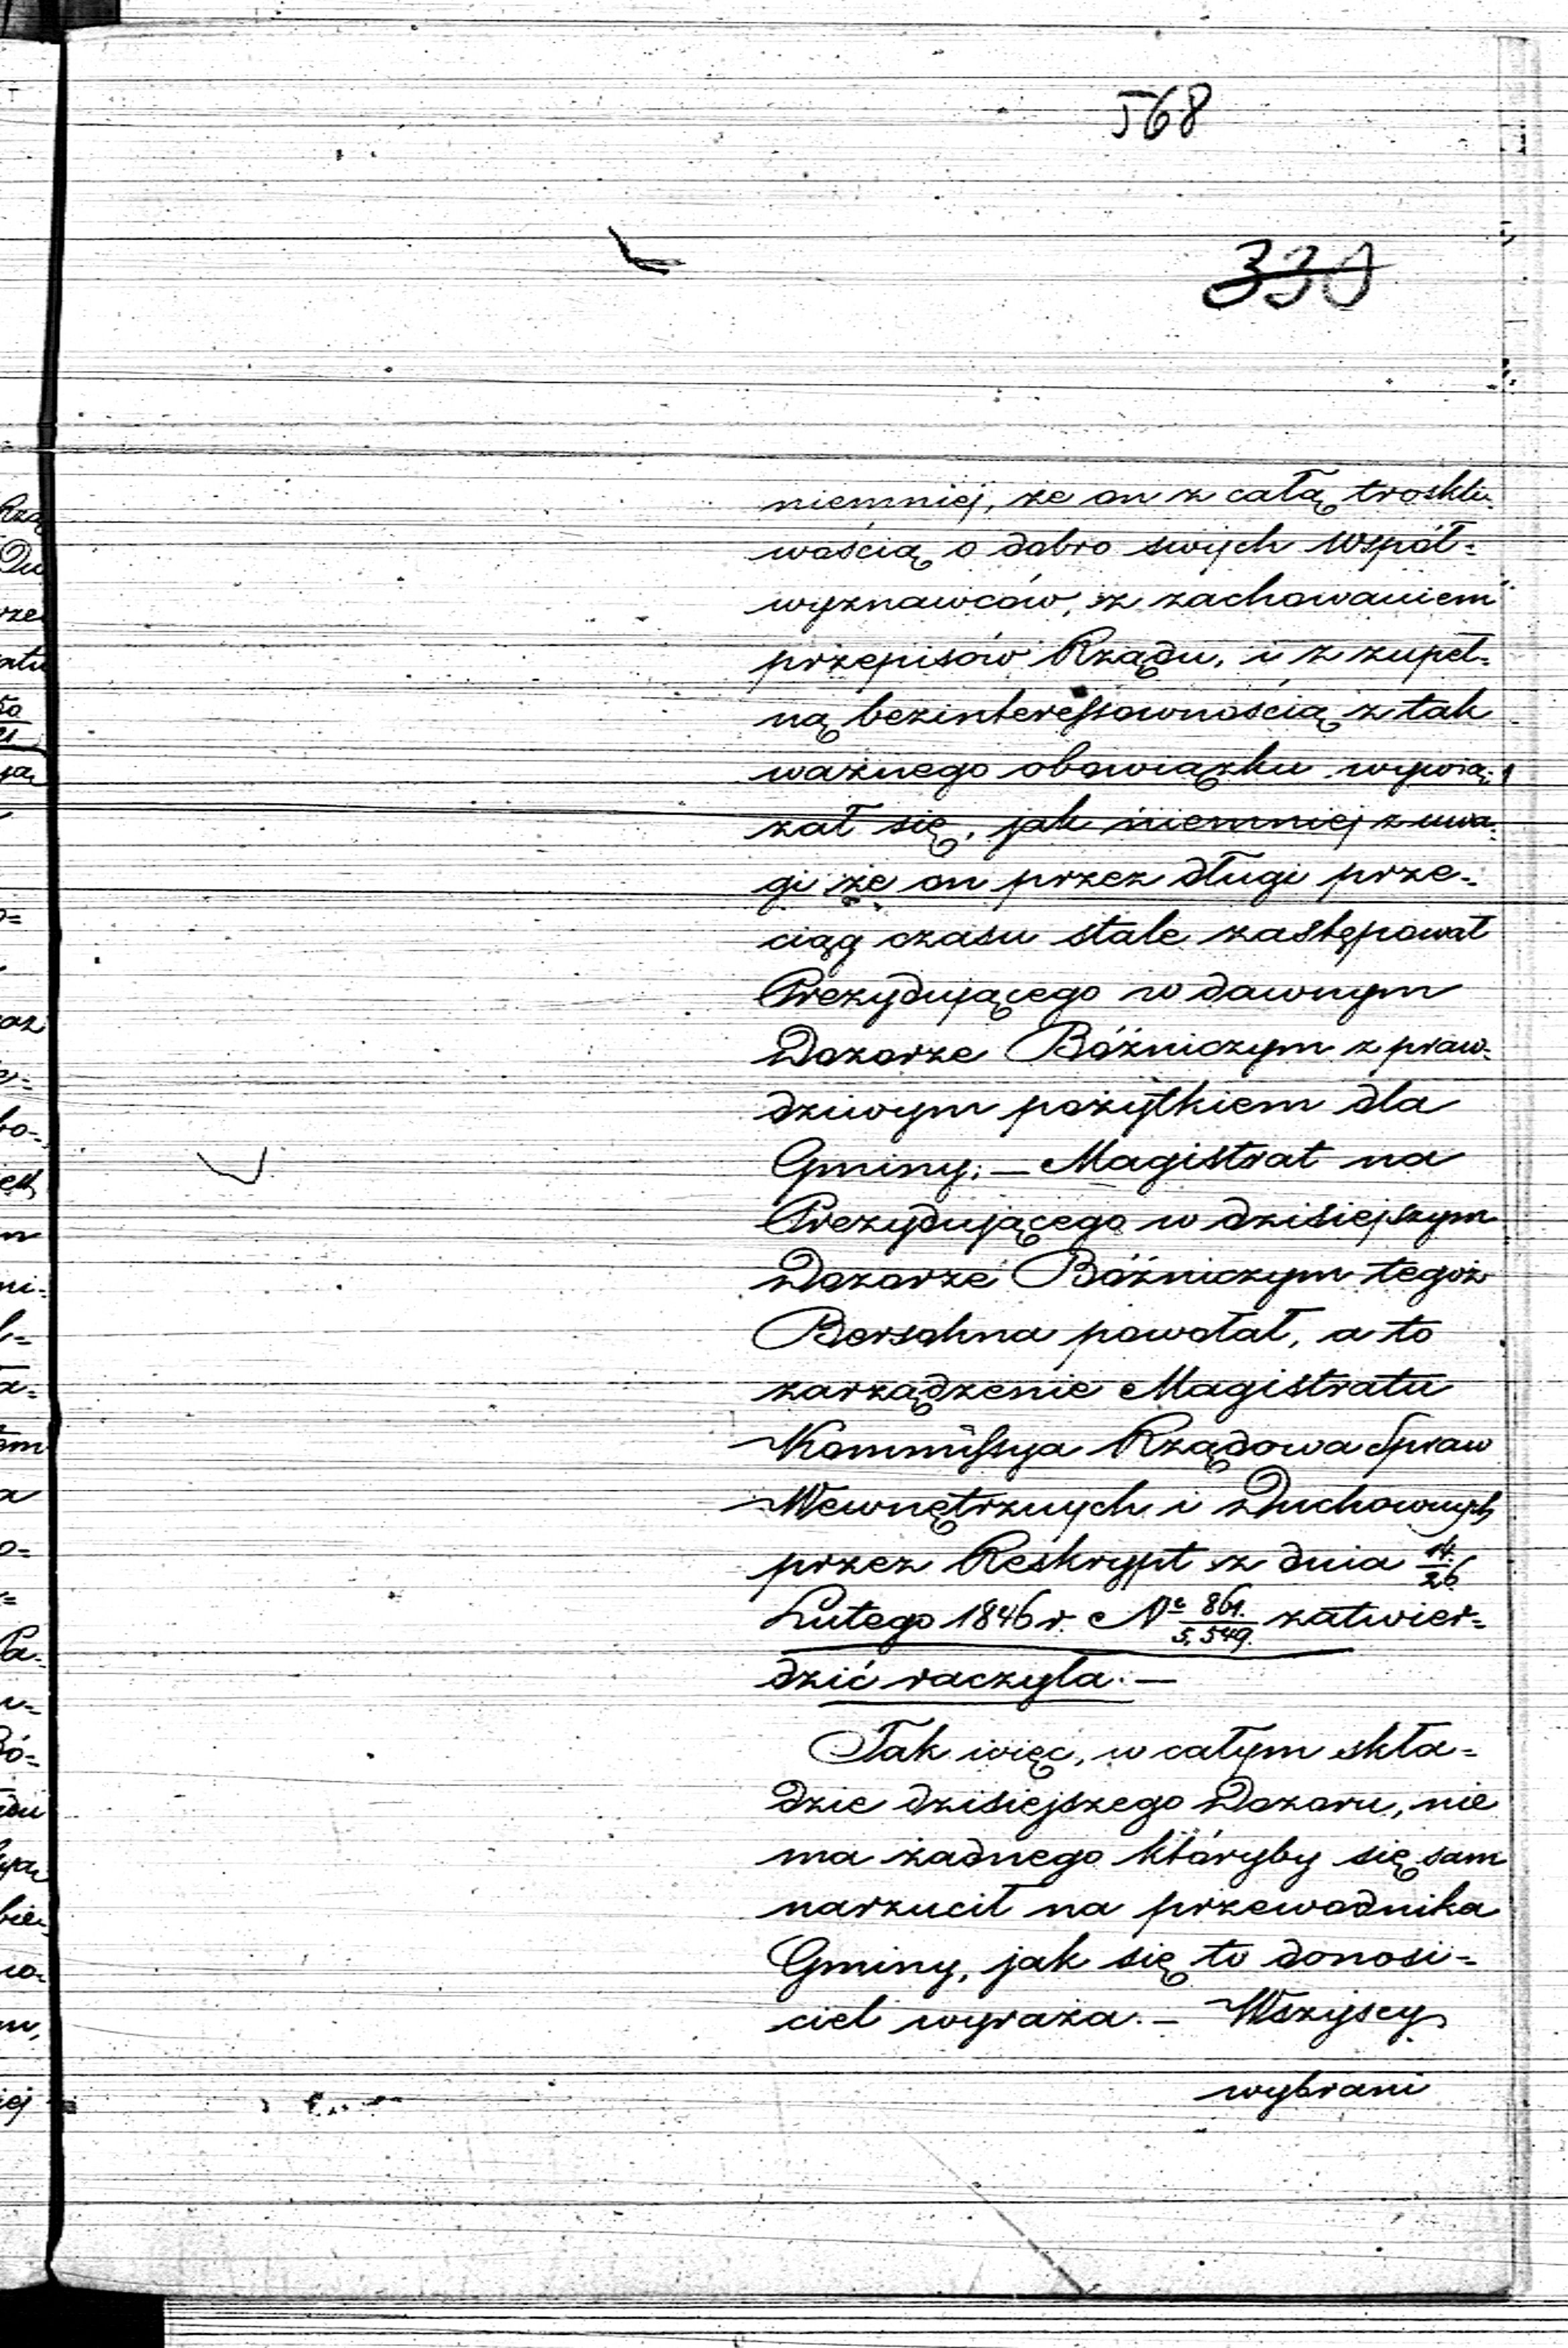 568
330
niemniej, że on z całą troskli-
wością o dobro swych współ=
wyznawców, z zachowaniem
przepisów Rządu, i z zupeł=
ną bezinteressownością z tak
ważnego obowiązku wywią=
zał się, jak niemniej z uwa=
gi że on przez długi prze=
ciąg czasu stale zastępował
Prezydującego w dawnym
Dozorze Bóżniczym z praw=
dziwym pożytkiem dla
Gminy; – Magistrat na
Prezydującego w dzisiejszym
Dozorze Bóżniczym tegoż
Bersohna powołał, a to
zarządzenie Magistratu
Kommissya Rządowa Spraw
Wewnętrznych i Duchownych
przez Reskrypt z dnia 14/26
Lutego 1846 r. Nº 861./5,549. zatwier=
dzić raczyla. –
Tak więc, w całym skła=
dzie dzisiejszego Dozoru, nie
ma żadnego któryby się sam
narzucił na przewodnika
Gminy, jak się to donosi=
ciel wyraża. – Wszyscy
wybrani